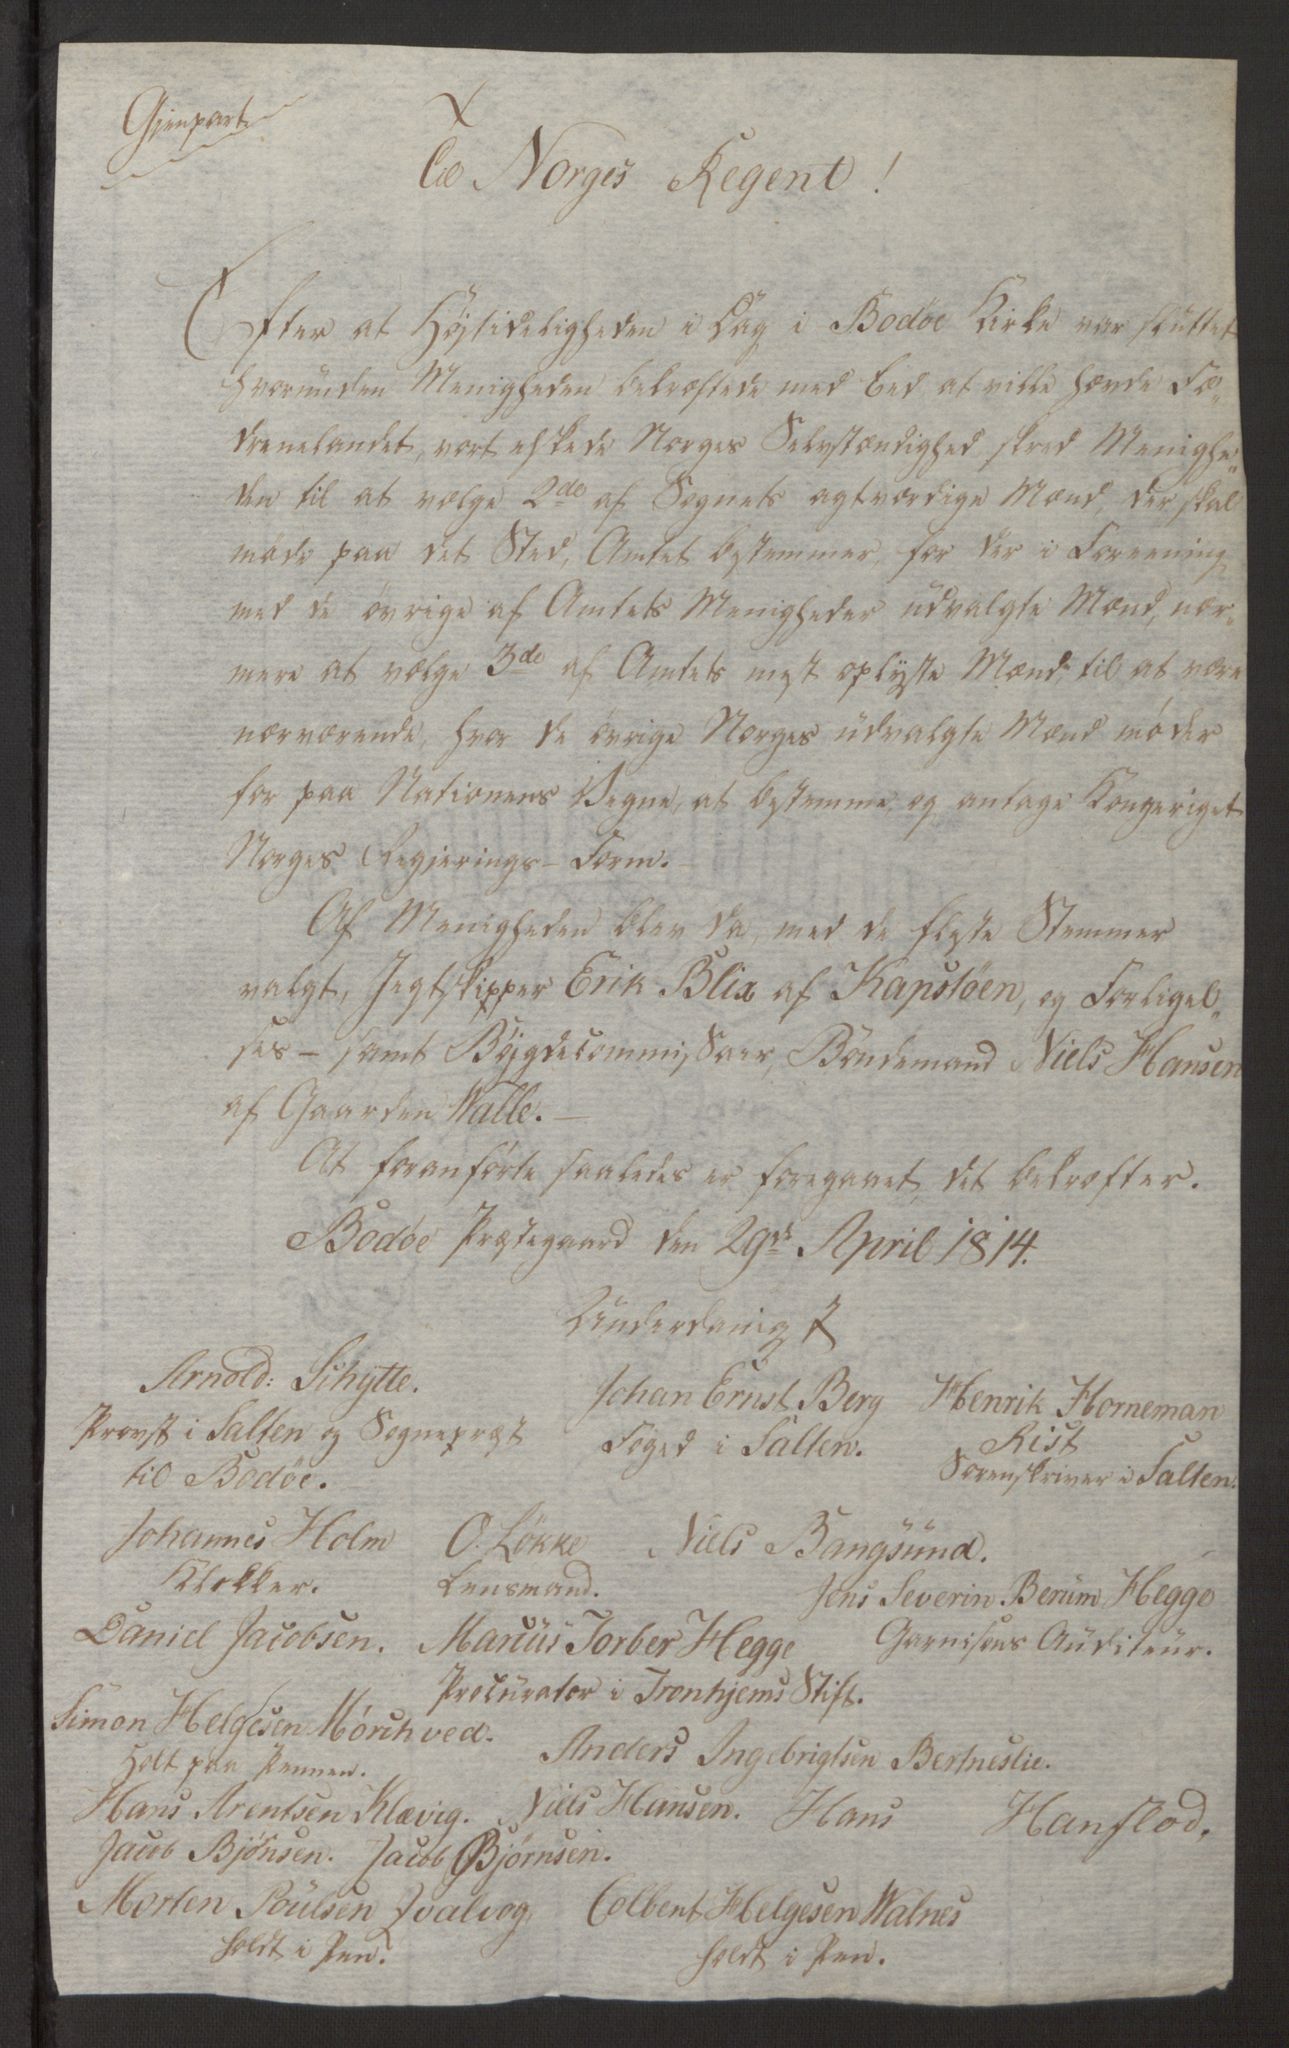 Gjenpart
Til Norges Regent!
Efter at Højtideligheden i Dag i Bodøe Kirke var sluttet
hvorunden Menigheden bekræftede med Eed at ville hævde Fæ„
drenelandet, vort elskede Norges Selvstændighed skred Menighe„
den til at vælge 2de af Sognets agtværdige Mænd, der skal
møde paa det Sted, Amtet bestemmer, for der i Foreening
med de øvrige af Amtets Menigheder udvalgte Mænd, nær„
mere at vælge 3de af Amtets mest oplyste Mænd, til at være
nærværende, hvor de øvrige Norges udvalgte Mænd møder
for paa Nationens Vegne, at bestemme, og antage Kongeriget
Norges Regjerings-Form.-
Af Menigheden blev da, med de fleste Stemmer
valgt, Jegtskipper Erik Blix af Kapstøen, og Forligel„
ses- samt Bøjgdecommissær, Bondemand Niels Hansen
af Gaarden Walle.-
At foranførte saaledes er foregaaet, det bekræfter.
Bodøe Præstegaard den 29de April 1814.
Underdanigst
Arnold: Schytte. Johan Ernst Berg Henrik Horneman
Provst i Salten og Sognepræst Foged i Salten. Rist
til Bodøe. Sorenskriver i Salten.
Johannes Holm O. Løkke Niels Bangsund.
Klokker. Lensmand. Jens Severin Berum Hegge
Daniel Jacobsen. Marcus Torber Hegge Garnisons Auditeur.
Procurator i Tronhjems Stift.
Simon Helgesen Mørchved.
Holt paa Pennen. Anders Ingebrigtsen Bertneslie.
Hans Arentsen Klævig. Niels Hansen. Hans Hansflod.
Jacob Bjønsen. Jacob Bjørnsen.
Morten Poulsen Qvalvog Colbent Helgesen Walnes
holdt i Pen. holdt i Pen.